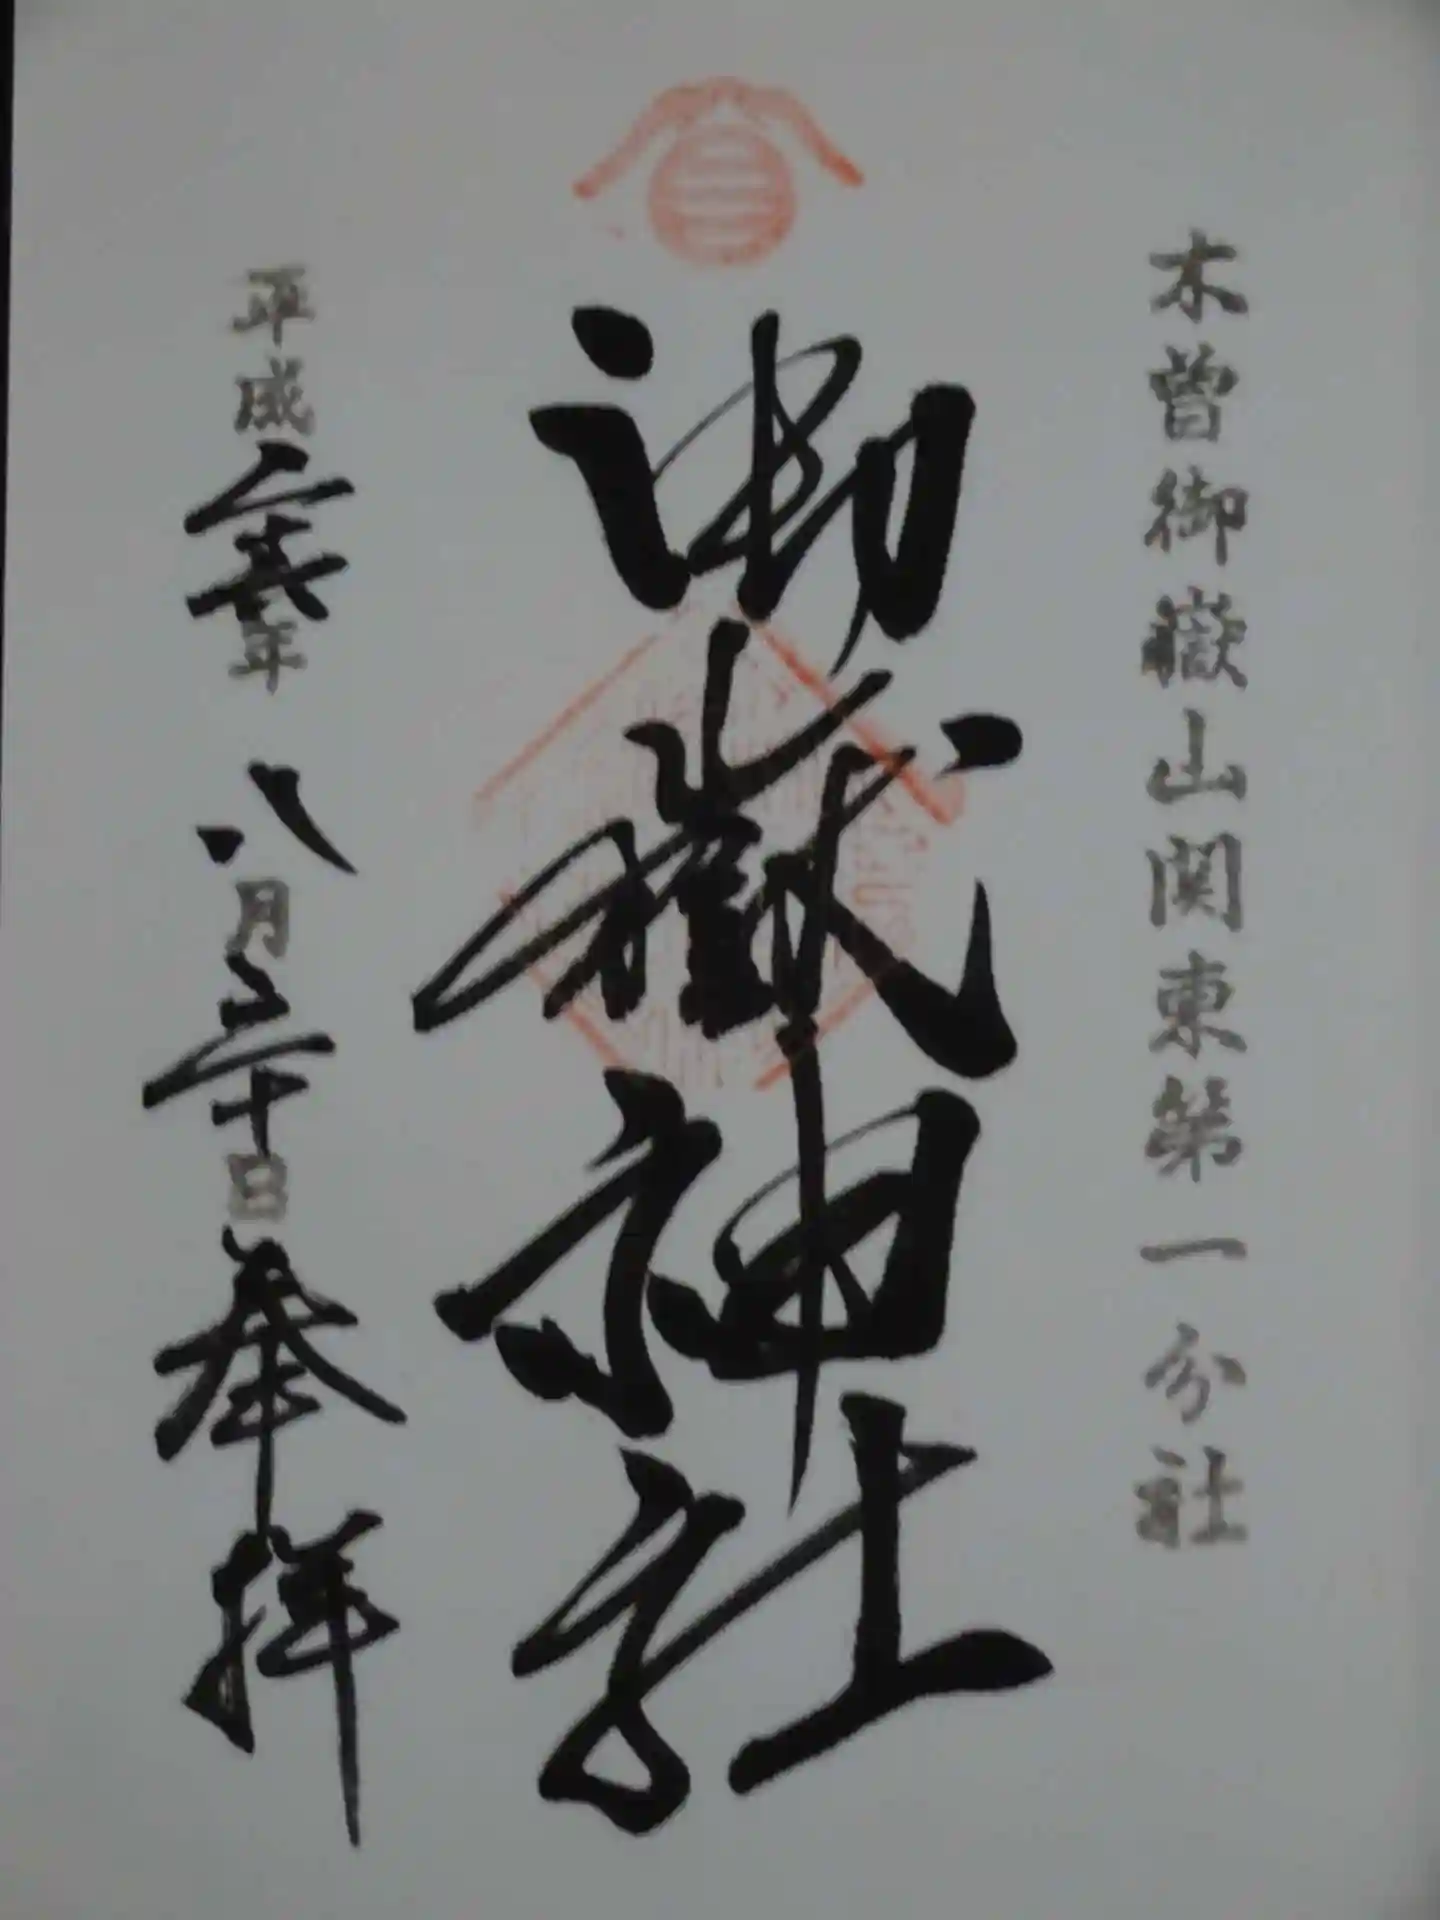 木曽御嶽山関東第一分社
御嶽神社
平成二十六年 八月二十日 奉拝